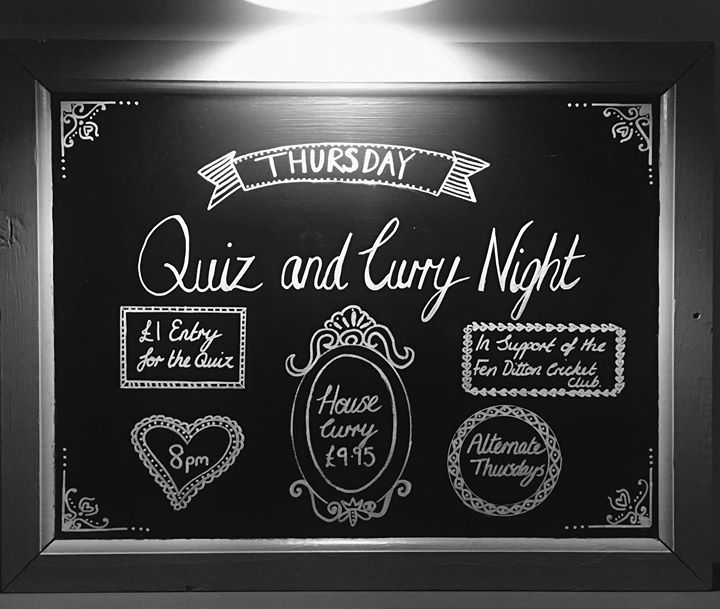 THURSDAY
Quiz and Curry Night
£1 Entry
for the Quiz
In Support of the
Fen Ditton Cricket
Club.
House
Curry
£9.95
8pm
Alternate
Thursdays